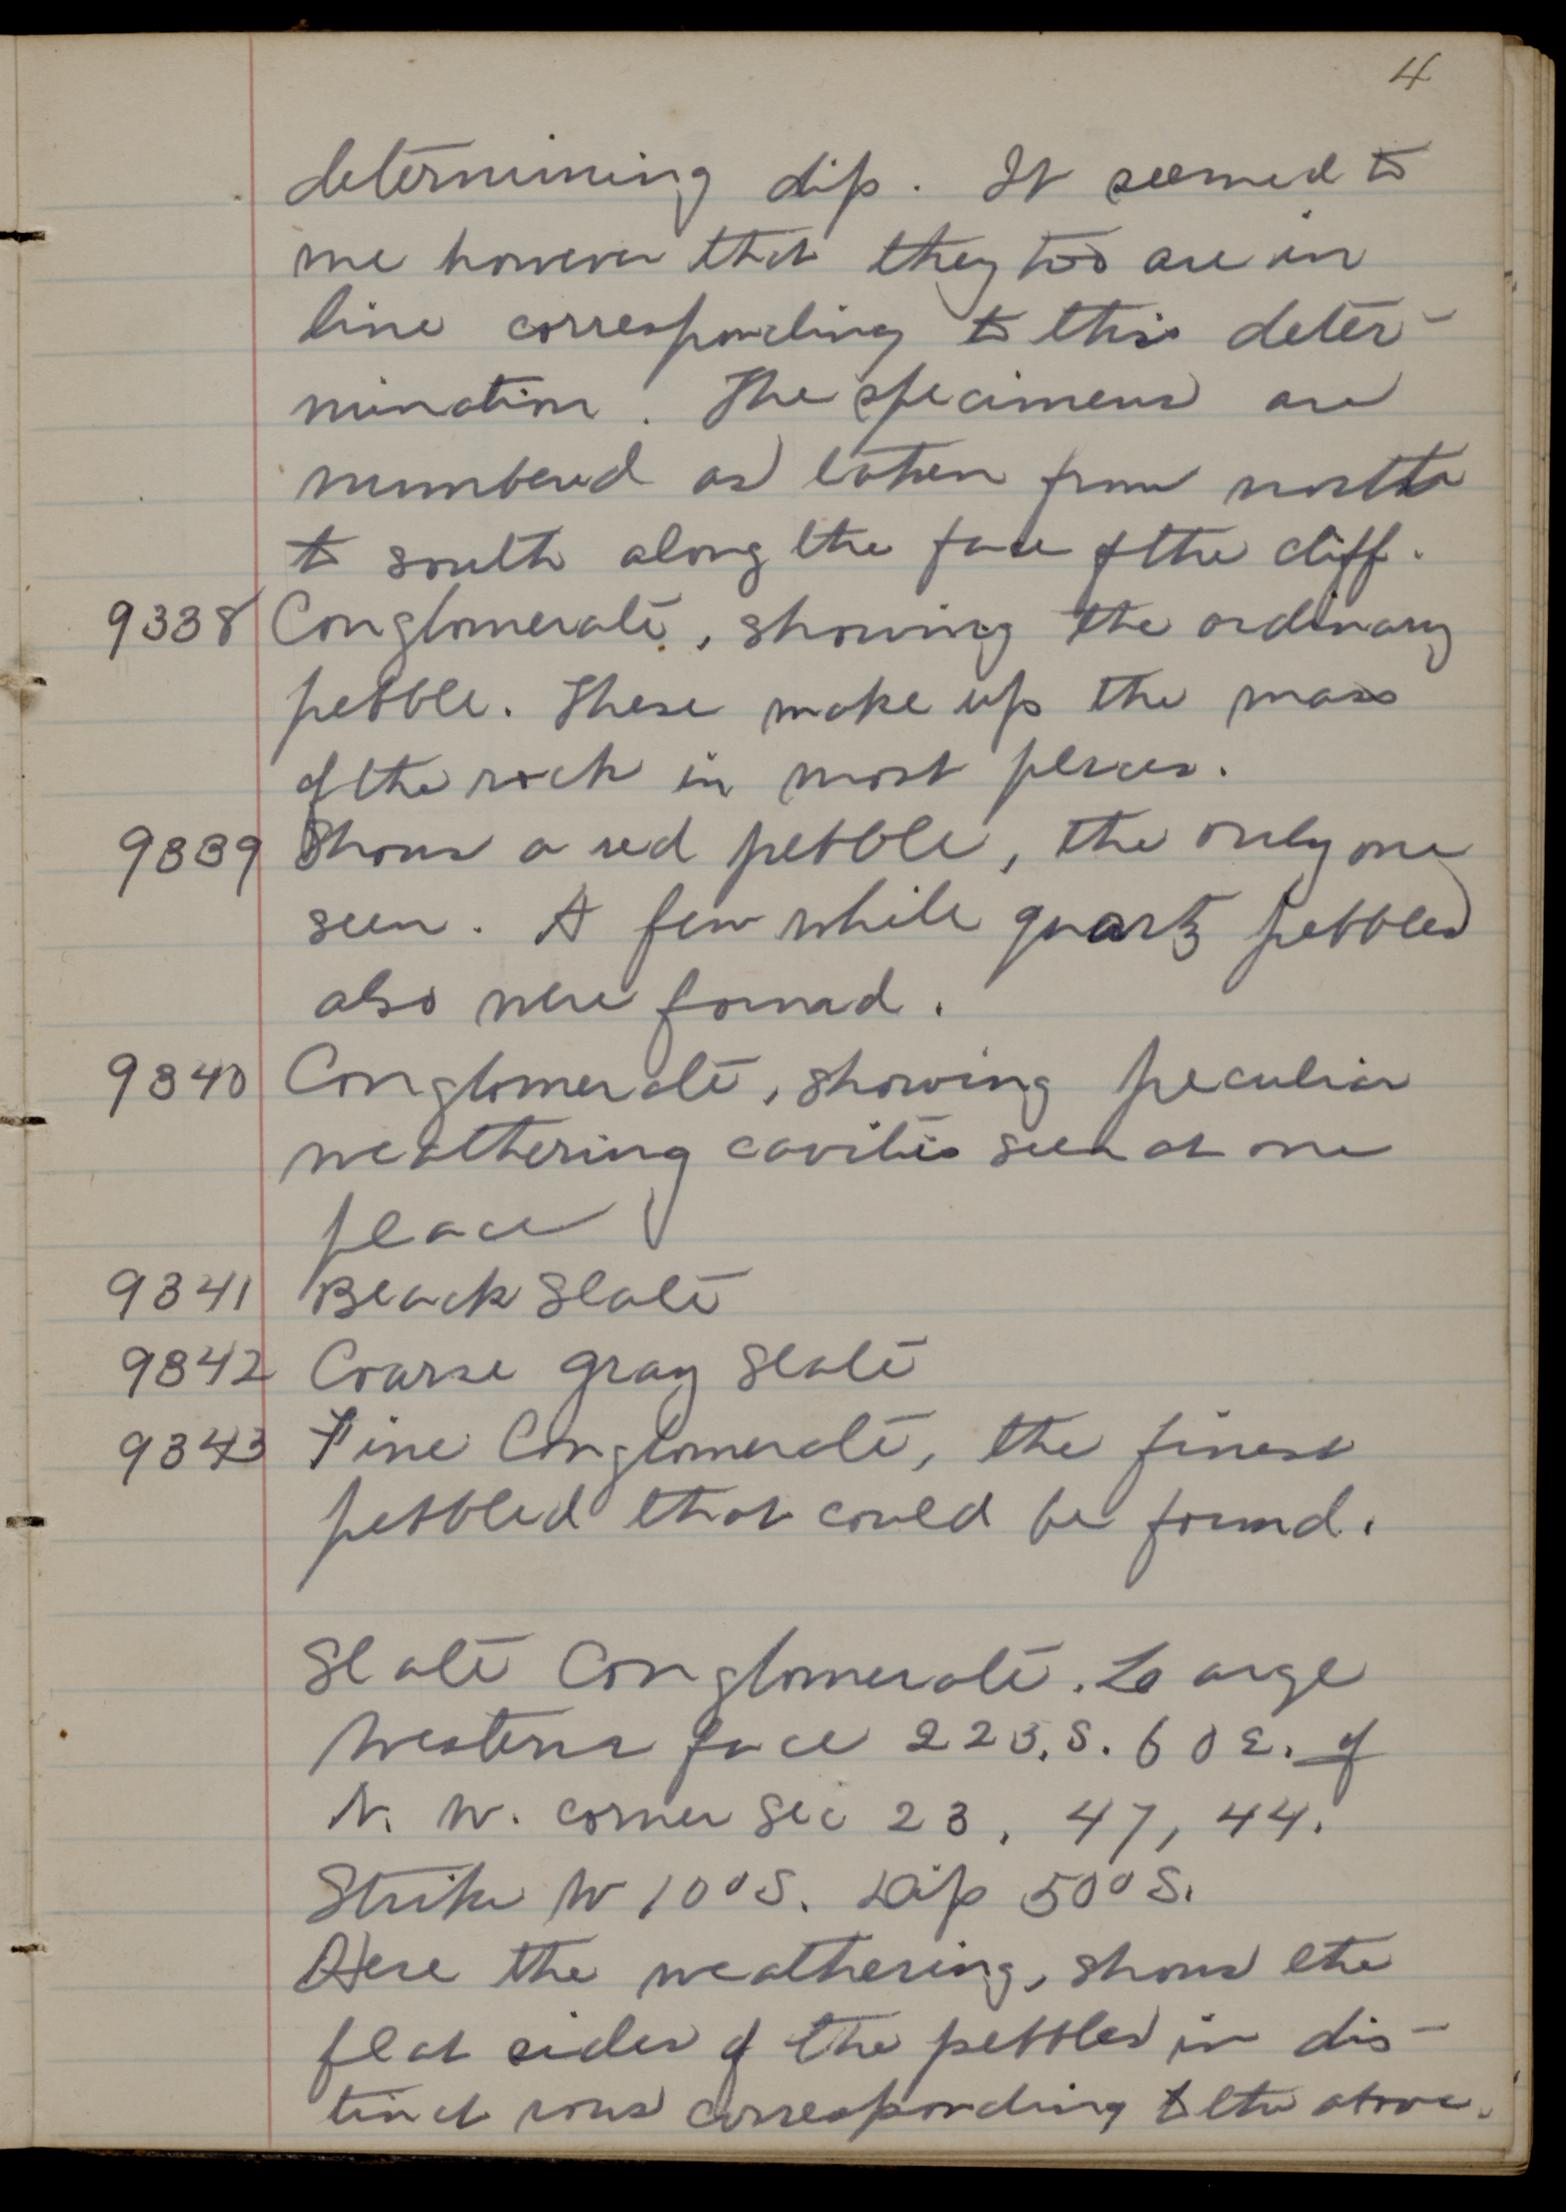 4
determining dip. It seemed to
me however that they too are in
line corresponding to this deter-
mination. The specimens are
numbered as taken from north
to south along the face of the cliff.
9338 Conglomerate, showing the ordinary
pebble. These make up the mass
of the rock in most places.
9339 Shows a red pebble, the only one
seen. A few white quartz pebbles
also were found.
9340 Conglomerate, showing peculiar
weathering cavities seen at one
place
9341 Black Slate
9342 Coarse gray Slate
9343 Fine Conglomerate, the finest
pebbled that could be found.
Slate Conglomerate. Large
Western face 223. S. 60 E. of
N. W. corner Sec 23, 47, 44.
Strike W 10° S. Dip 50° S.
Here the weathering, shows the
flat sides of the pebbles in dis-
tinct rows corresponding to the above.